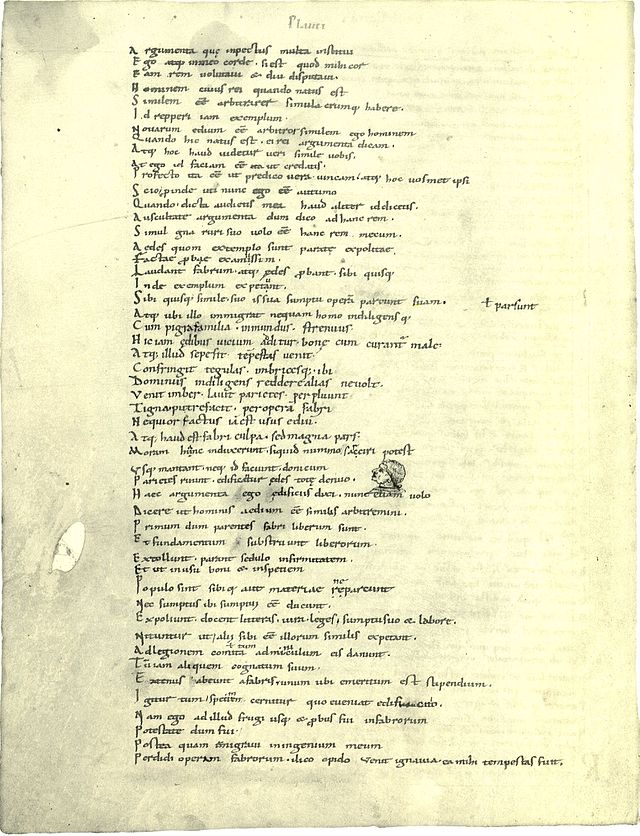 Plauti
Argumenta que inpectus multa institui
Ego atq; in meo corde. si est quod mihi cor
Eam rem volutavi & diu disputavi.
Hominem cuius rei quando natus est
Similem eē arbitrarer simulacrumq; habere.
Id repperi iam exemplum.
Novarum edium eē arbitror similem ego hominem
Quando hic natus est. ei rei argumenta dicam.
Atq; hoc haud videtur veri simile vobis.
At ego id faciam eē ita ut credatis.
Profecto ita eē ut predico vera vincam. atq; hoc vosmet ipsi
Scio proinde uti nunc ego eē autumo
Quando dicta audietis mea haud aliter id dicetis.
Auscultate argumenta dum dico ad hanc rem.
Simul gnaruris suo volo eē hanc rem mecum.
Aedes quom extemplo sunt parate expolitae
Factae pbae examissim.
Laudant fabrum. atq; edes pbant. sibi quisq;
Inde exemplum expetunt.
Sibi quisq; simile. suo is sua sumptu operā pareunt suam.
ł parsunt
Atq; ubi illo immigrat nequam homo indiligensq;
Cum pigra familia. inmundus. strenuus
Hic iam edibus vicium additur. bone cum curant male.
Atq; illud sepe fit tēpestas venit.
Confringit tegulas. imbricesq; ibi
Dominus indiligens reddere alias nevolt.
Venit imber. lavit parietes. perpluunt
Tigna putrefacit. per operā fabri
Nequior factus iā est usus ediū.
Atq; haud est fabri culpa. sed magna pars.
Moram hanc induxerunt. siquid nummo sarciri potest
Usq; mantant. neq; id faciunt. donicum
Parietes ruunt. edificātur edes tote denuo.
Haec argumenta ego edificiis dixi. nunc etiam volo
Dicere ut hominis aedium eē similis arbitremini.
Primum dum parentes fabri liberum sunt.
Et fundamentum substruunt liberorum.
Extollunt. parant sedulo infirmitatem.
Et ut in usū boni & in speciem
Populo sint sibi q; aut materiae ne reparcunt
Nec sumptus ibi sumptui eē ducunt.
Expoliunt. docent litteras. iura. leges. sumptu suo & labore.
Nituntur ut alii sibi eē illorum similis expetant.
Ad legionem comitā adminiculum eis danunt.
Tū iam aliquem cognatum suum.
Eatenus abeunt a fabris. unum ubi emeritum est stipendium.
Igitur tum specimē cernitur quo eveniat edificatio.
Nam ego ad illud frugi usq; & pbus fui in fabrorum
Potestate dum fui
Postea quam inmigravi in ingenium meum
Perdidi operam fabrorum. ilico opido venit ignavia. ea mihi tempestas fuit.